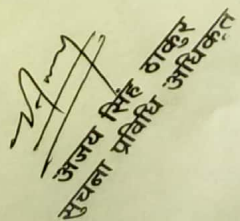 अजय सिंह ठाकुर
सूचना प्रविधि अधिकृत